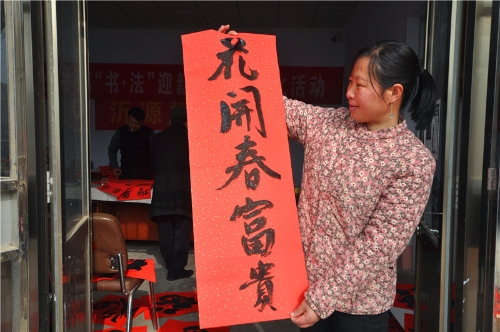 花開春富貴
“书·法”迎新
活动
沂源